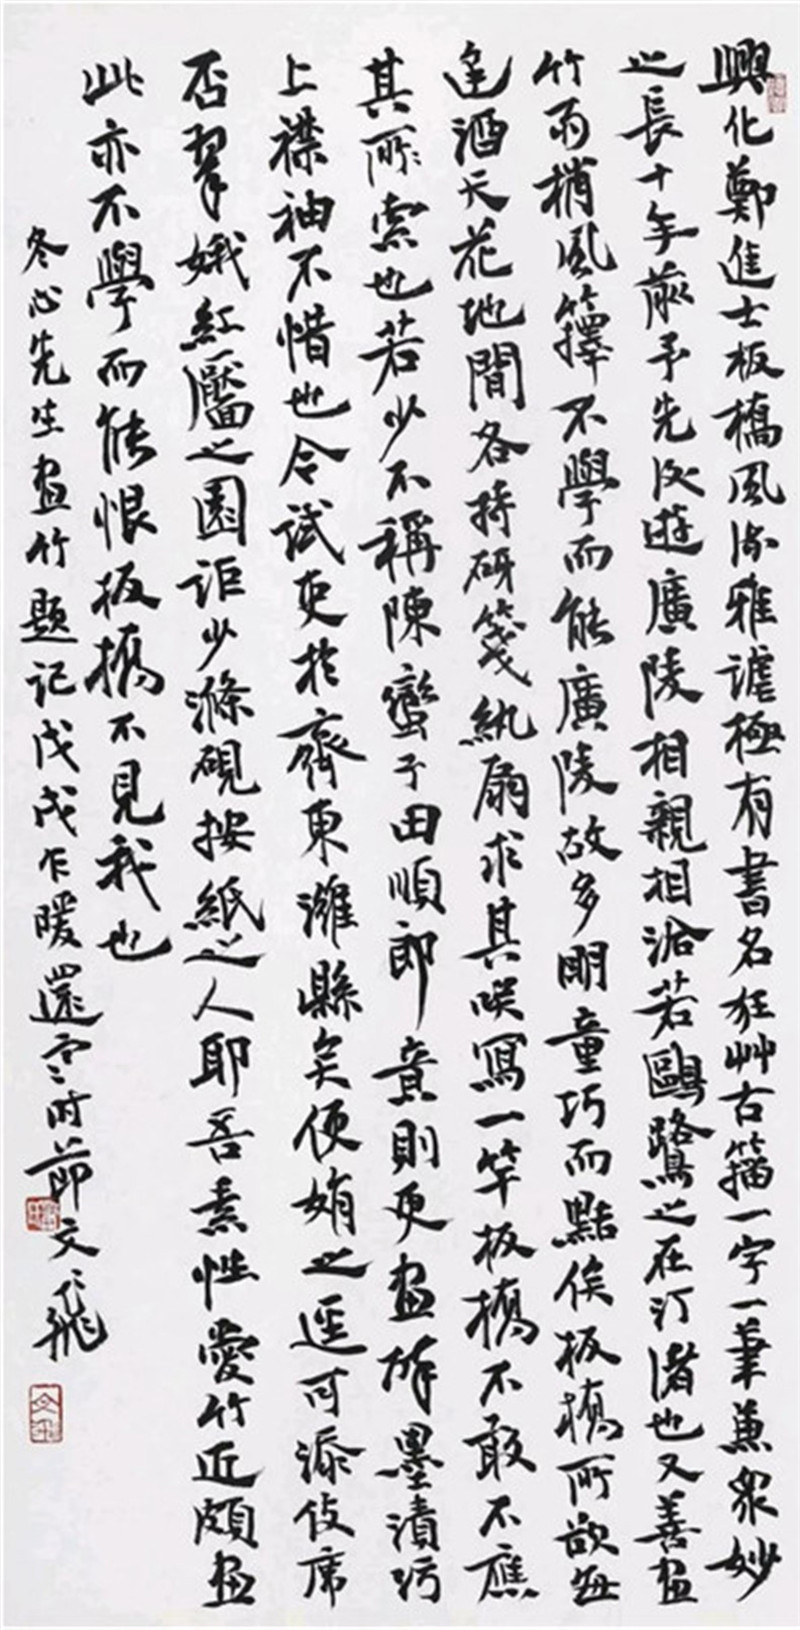 興化鄭進士板橋風流雅謔極有書名狂艸古籀一字一筆兼眾妙
之長十年前予先後遊廣陵相親相洽若鷗鷺之在汀渚也又善画
竹雨梢風籜不學而能廣陵故多明童巧而黠俟板橋所欲每
逢酒天花地間各持砑箋紈扇求其笑寫一竿板橋不敢不應
其所索也若少不稱陳蠻子田順郎意則更画醉墨漬污
上襟袖不惜也今試吏於齊東濰縣矣便娟之逕可添伎席
否翠娥紅靨之園詎少滌硯按紙之人耶吾素性愛竹近頗画
此亦不學而能恨板橋不見我也
冬心先生画竹题記戊戌乍暖還寒时節文飛